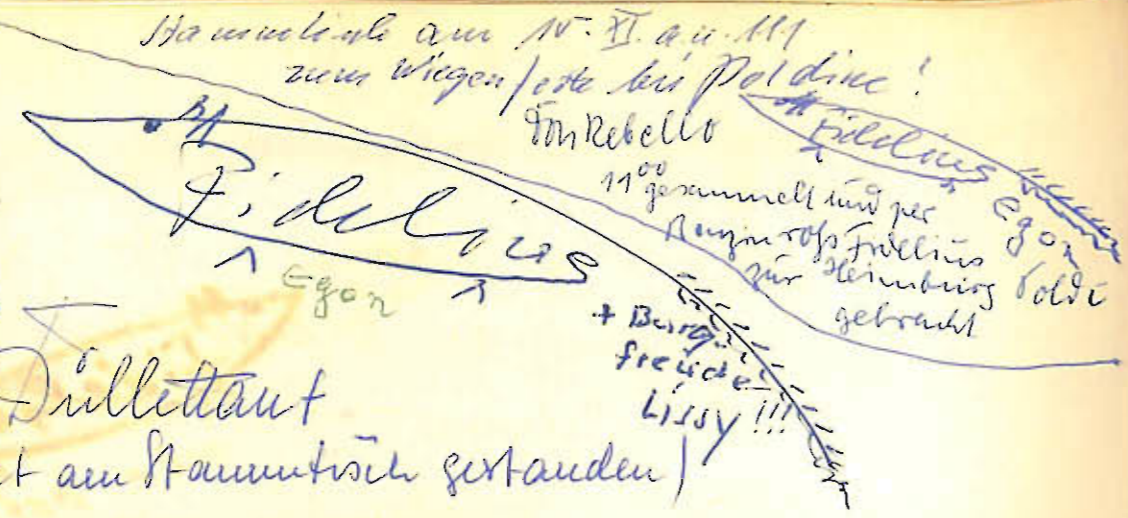 Stammtisch am 15. XI. a.u. 111
zum Wiegenfeste bei Poldine!
Ton Rebello
Fidelius
Egon
Poldi
11⁰⁰ gesammelt und per
Benzinross Fidelius
zur Heimburg
gebracht
Fidelius
Egon
+ Burg
freude
Lissy!!!
Düllettant
t am Stammtisch gestanden)